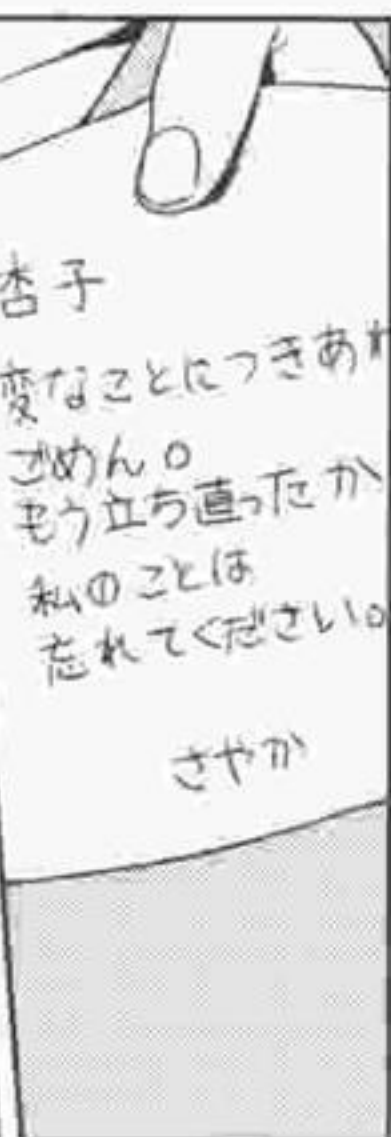 杏子
変なことにつきあわ
ごめん。
もう立ち直ったか
私のことは
忘れてください。
さやか